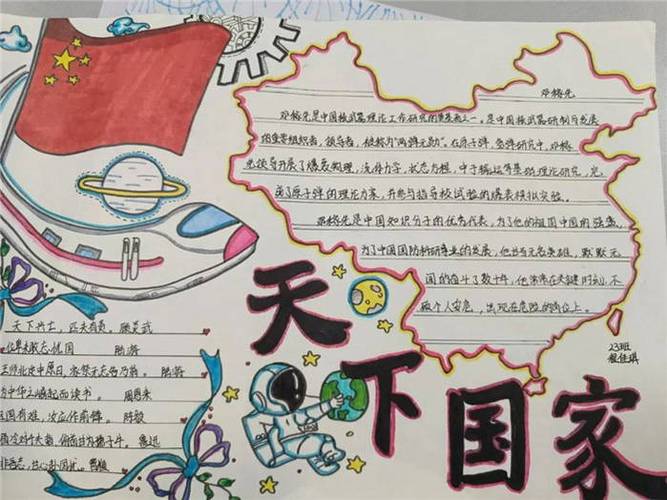 邓稼先
邓稼先是中国核武器理论工作研究的奠基者之一。是中国核武器研制与发展
的重要组织者，领导者，被称为"两弹元勋"。在原子弹、氢弹研究中，邓稼
先领导开展了爆轰物理，流体力学，状态方程，中子输运等基础理论研究，完
成了原子弹的理论方案，并参与指导核试验的爆轰模拟实验。
邓稼先是中国知识分子的优秀代表，为了他的祖国中国的强盛，
为了中国国防科研事业的发展，他甘当无名英雄，默默无
闻的奋斗了数十年，他常常在关键时刻，不
顾个人安危，出现在危险的岗位上。
23班
程佳琪
天下国家
天下兴亡，匹夫有责 顾炎武
位卑未敢忘忧国 陆游
王师北定中原日，家祭无忘告乃翁。陆游
为中华之崛起而读书。 周恩来
祖国有难，汝应作前锋。 陈毅
横眉冷对千夫指，俯首甘为孺子牛。鲁迅
捐躯赴国忧 曹植